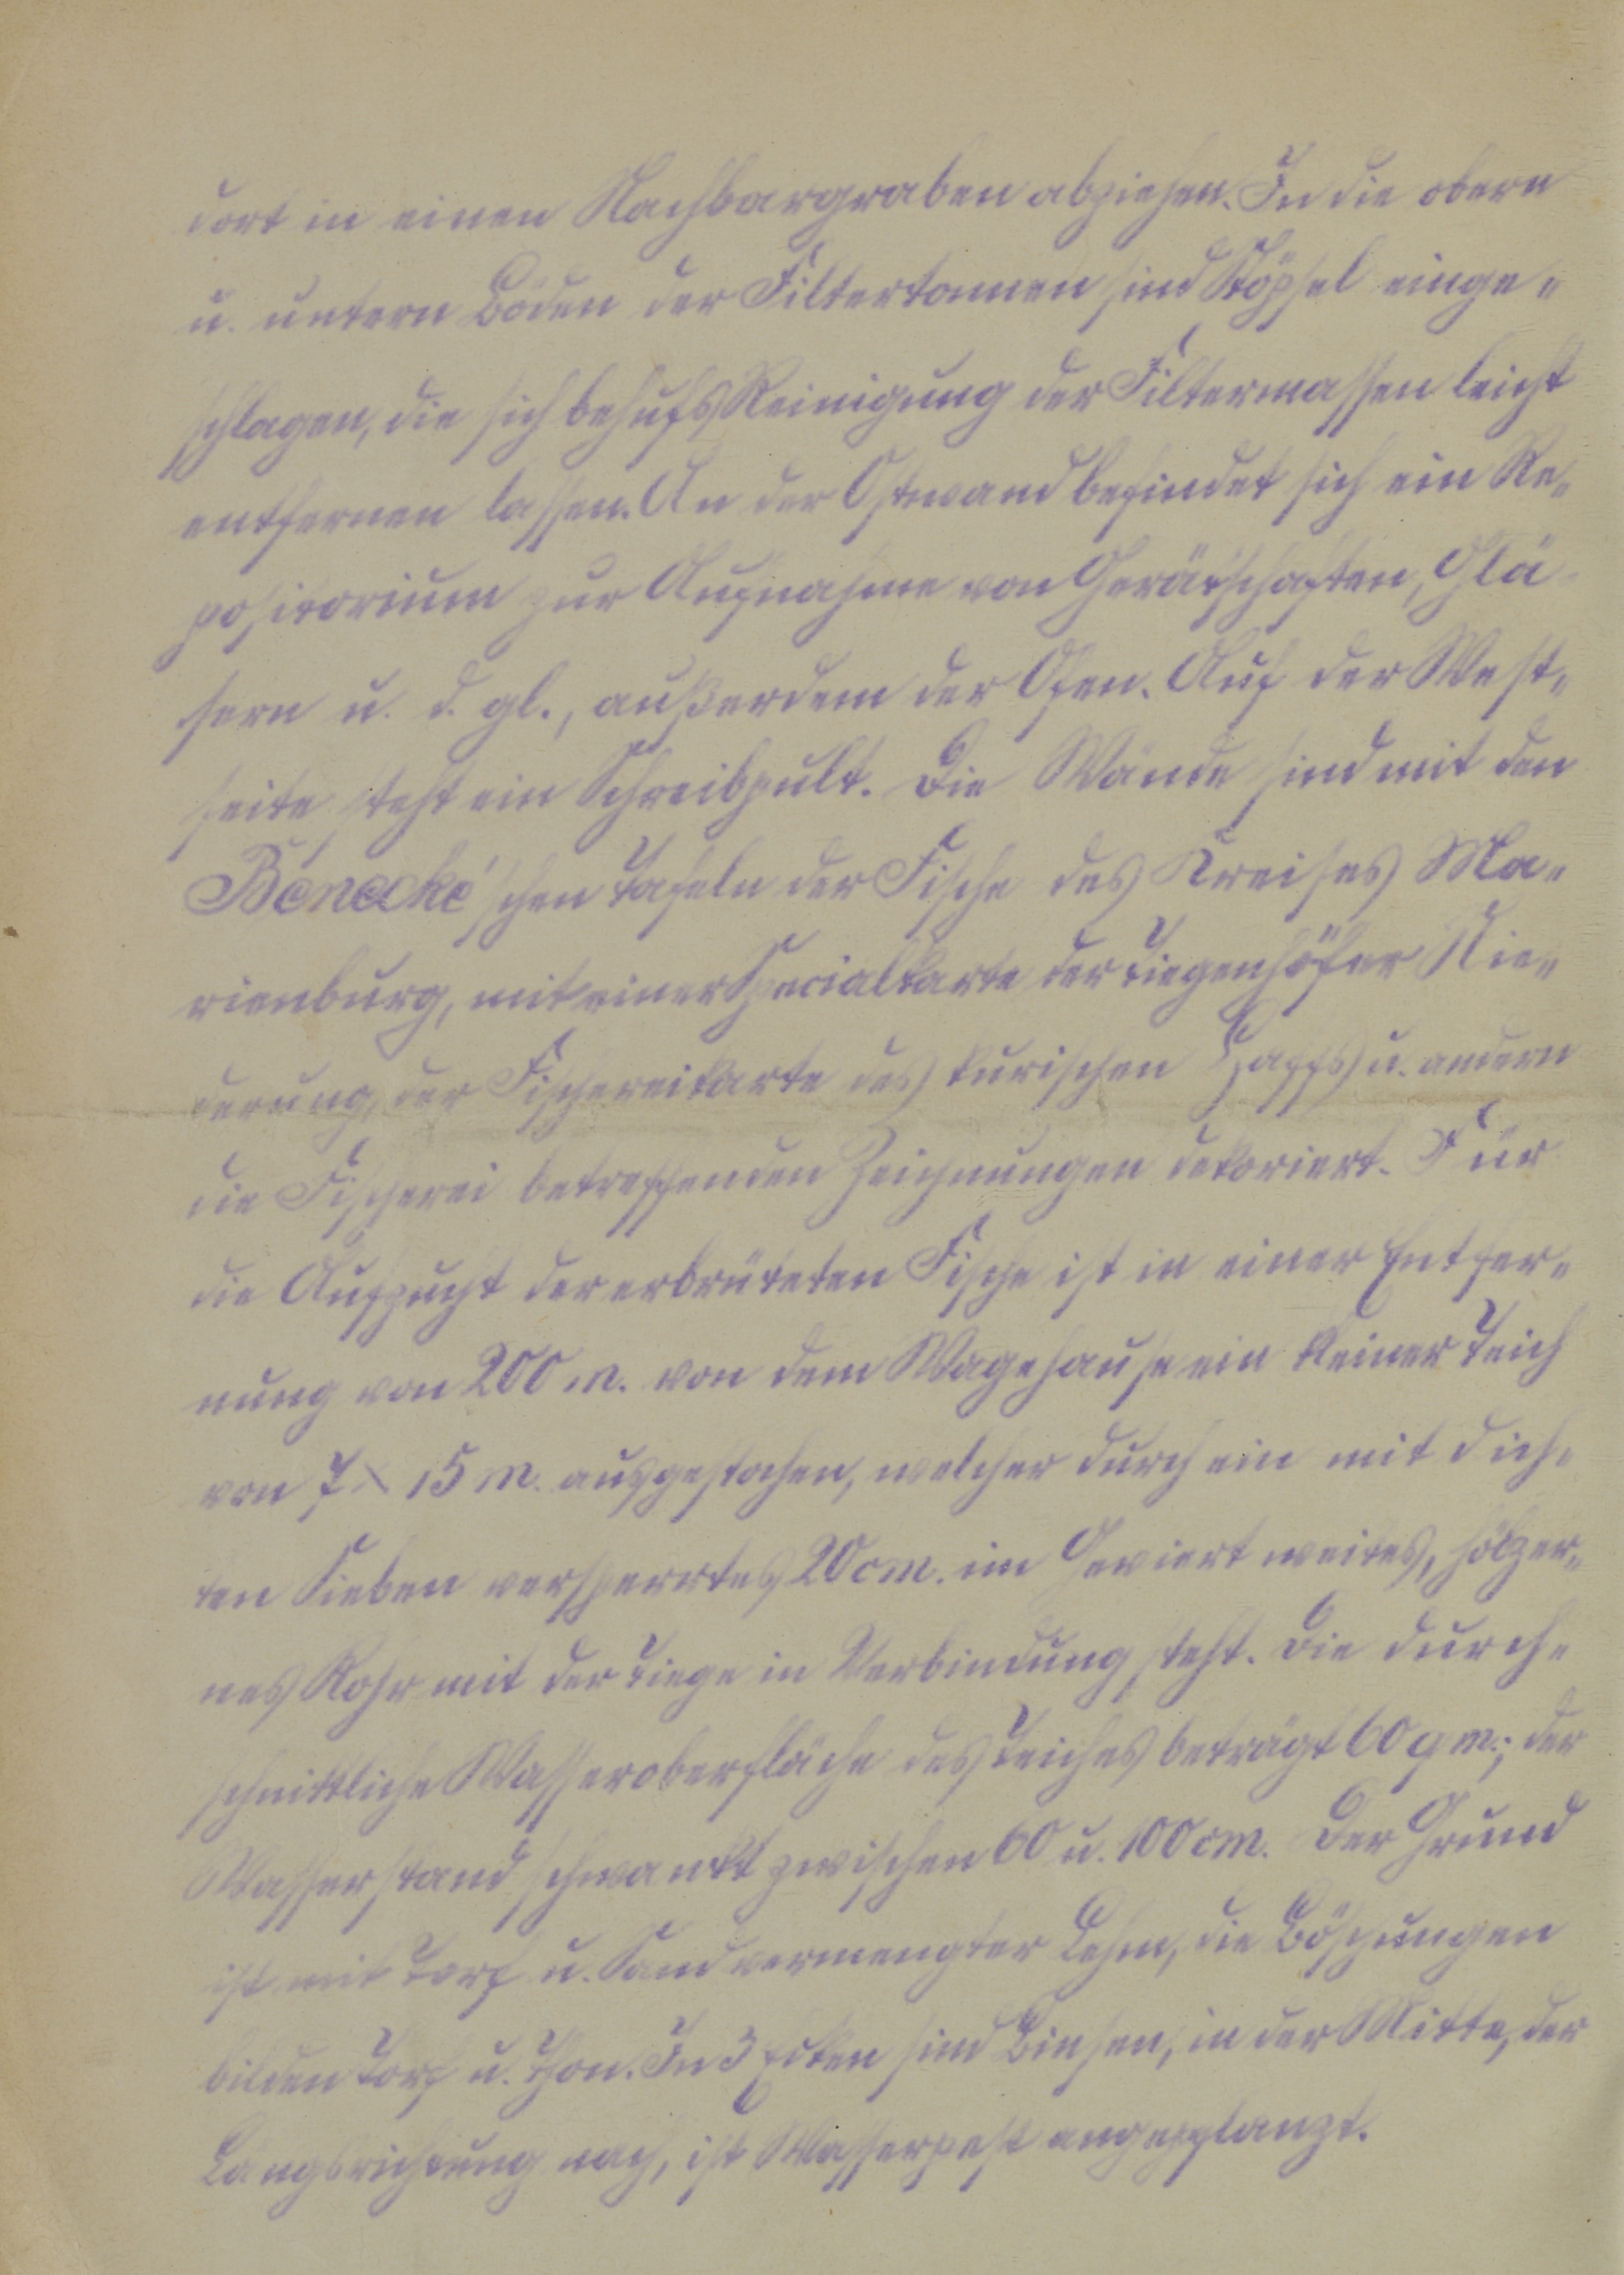 dort in einen Nachbargraben abziehen. In die obern
u. untern Böden der Filtertonnen sind Stöpsel einge-
schlagen, die sich behufs Reinigung der Filtermassen leicht
entfernen lassen. An der Ostwand befindet sich ein Re-
positorium zur Aufnahme von Gerätschaften, Glä-
sern u. d. gl., außerdem der Ofen. Auf der West-
seite steht ein Schreibpult. Die Wände sind mit den
Benecke'schen Tafeln der Fische des Kreises Ma-
rienburg, mit einer Specialkarte der Tiegenhöfer Nie-
derung, der Fischereikarte des kurischen Haffs u. andern
die Fischerei betreffenden Zeichnungen dekoriert. Für
die Aufzucht der erbrüteten Fische ist in einer Entfer-
nung von 200 m. von dem Wagehause ein kleiner Teich
von 7 × 15 m. ausgestochen, welcher durch ein mit dich-
ten Sieben versperrtes 20 cm. im Geviert weites, hölzer-
nes Rohr mit der Tiege in Verbindung steht. Die durch-
schnittliche Wasseroberfläche des Teiches beträgt 60 qm.; der
Wasserstand schwankt zwischen 60 u. 100 cm. Der Grund
ist mit Torf u. Sand vermengter Lehm, die Böschungen
bilden Torf u. Thon. In 3 Ecken sind Binsen, in der Mitte, der
Längsrichtung nach, ist Wasserpest angepflanzt.